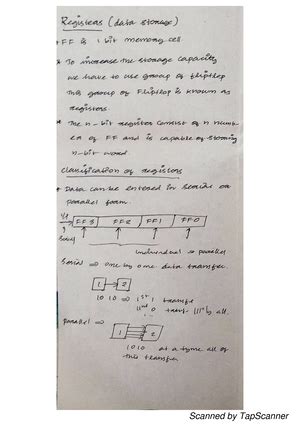 Registers (data storage)
* FF is 1 bit memory cell.
* To increase the storage capacity
we have to use group of flipflop
this group of Flipflop is known as
registers.
* The n-bit register consist of n numb
er of FF and is capable of storing
n-bit word.
Classification of registers
* Data can be entered in serial or
parallel form.
FF3 FF2 FF1 FF0
serial
individual → parallel
Serial ⇒ one by one data transfer.
1 → 2
1010 ⇒ 1st 1 transfer
IInd 0
parallel ⇒
1 2
1010 at a tyme all of
this transfer
Scanned by TapScanner